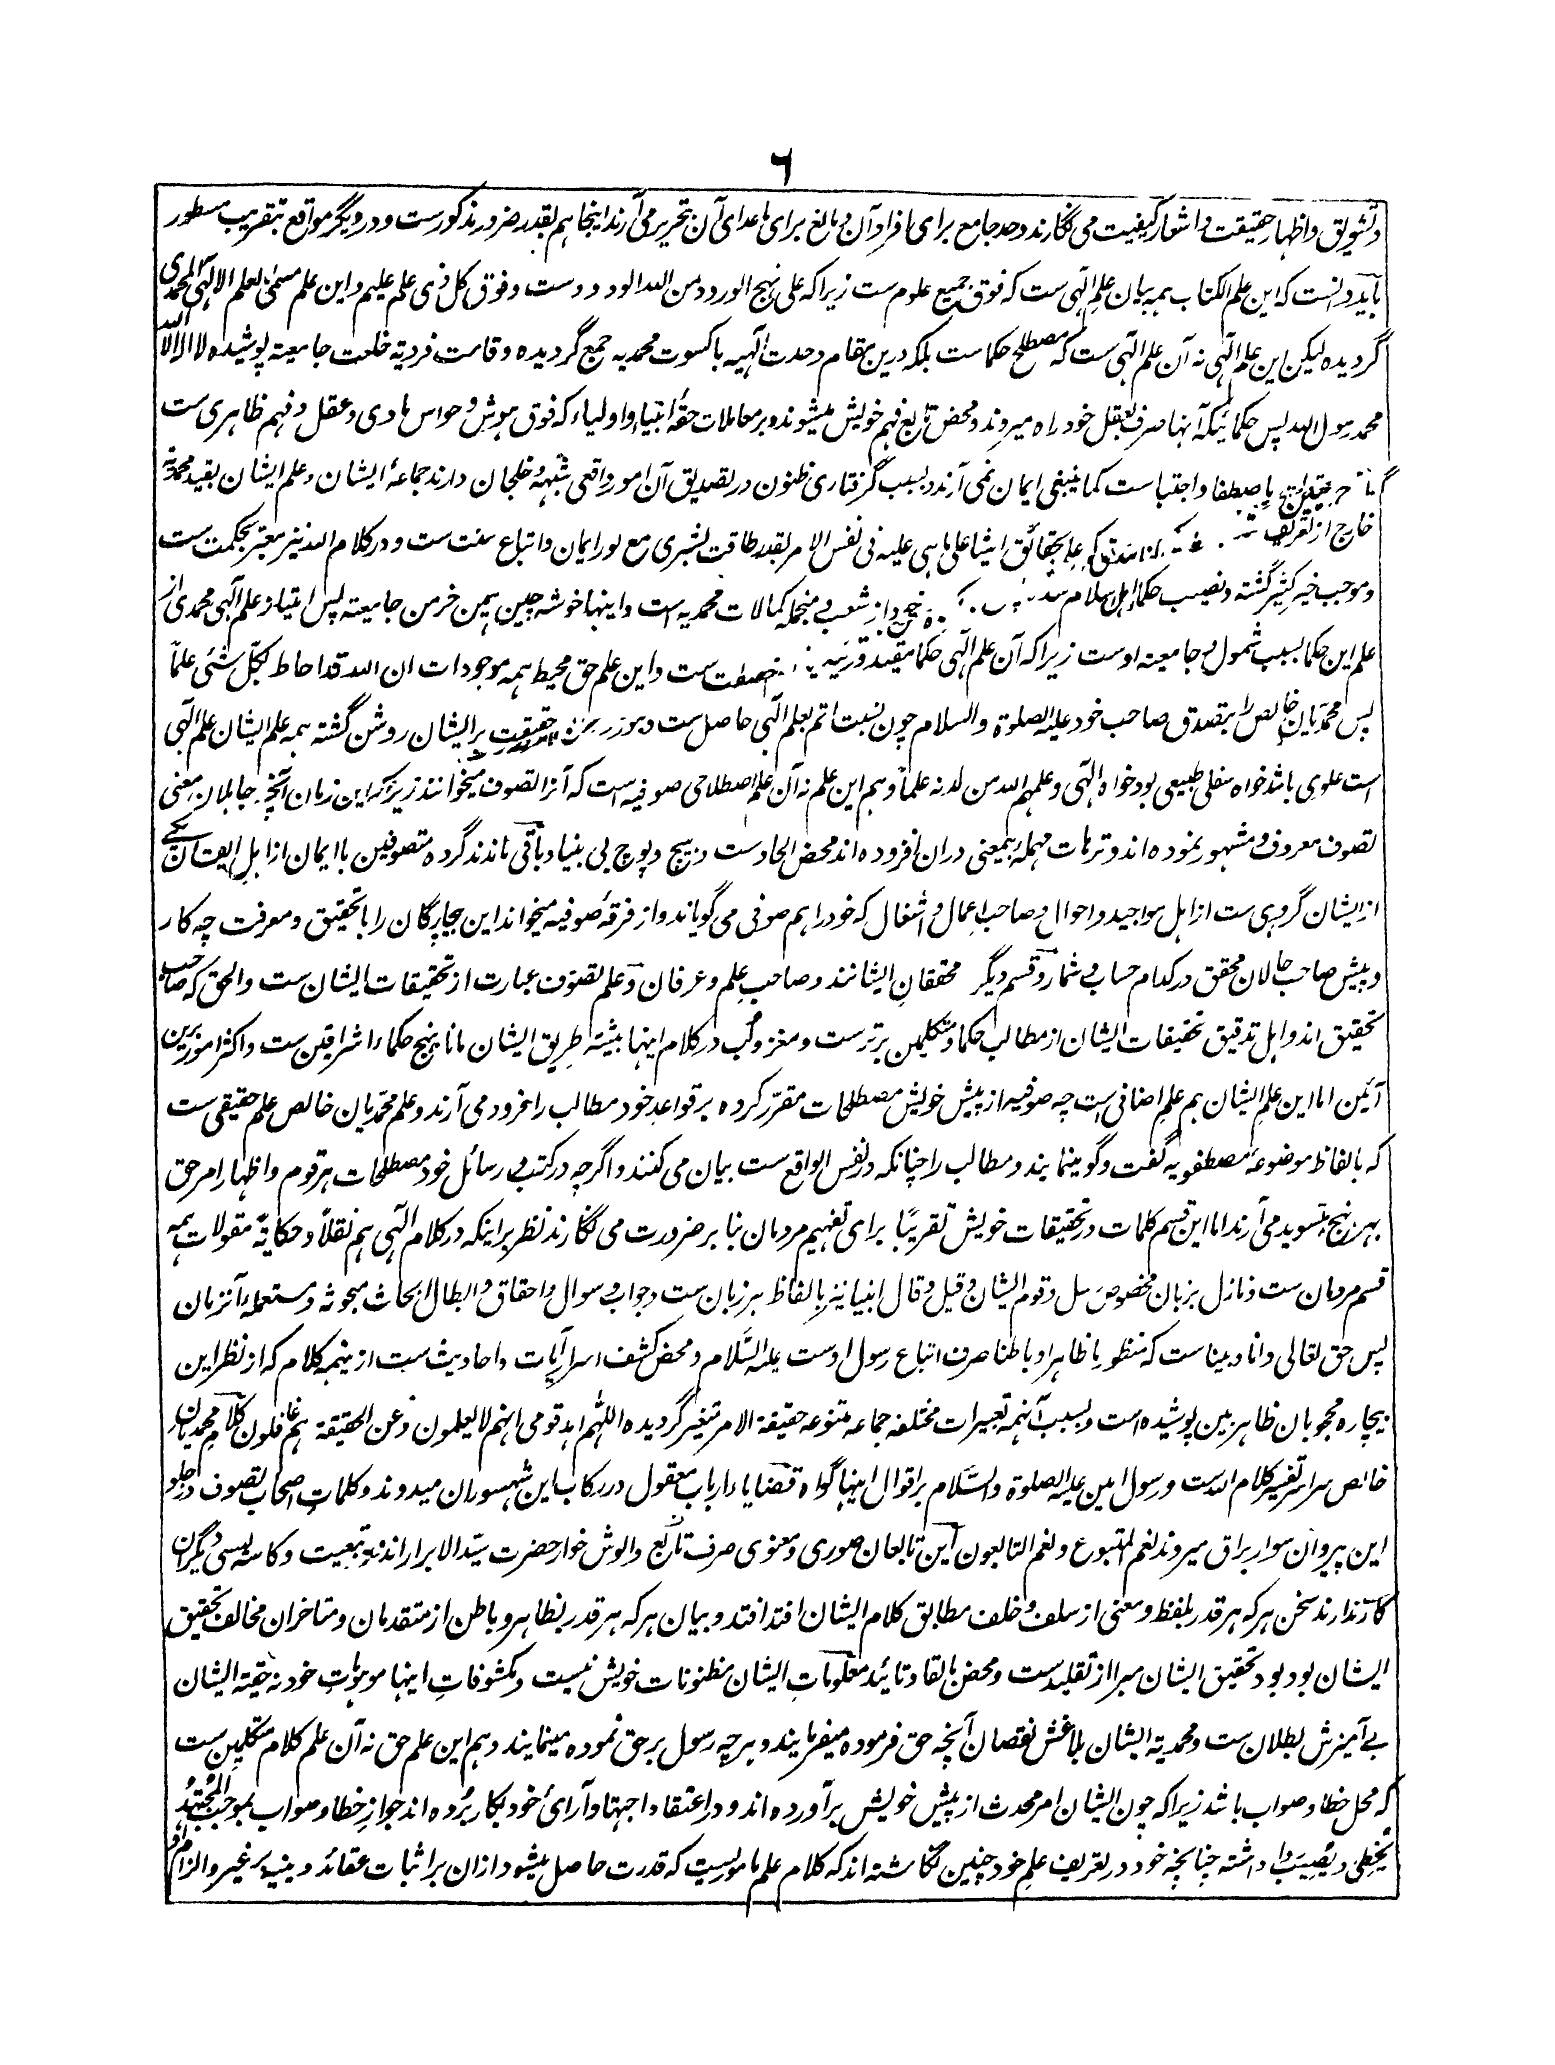 ٦
و تشویق و اظهار حقیقت و اشعار کیفیت می نگارند و حد جامع برای افراد آن و مانع برای ماعدای آن بتحریر می آرند اینجا هم بقدر ضرور مذکورست و در دیگر مواقع بتقریب مسطور
باید دانست که این علم الکتاب همه بیان علم الٰهی ست که فوق جمیع علوم ست زیراکه علی نهج الورود من الله الودود ست و فوق کل ذی علم علیم و این علم مسمی بعلم الالٰهی المحمدی
گردیده لیکن این علم الٰهی نه آن علم الٰهی ست که مصطلح حکماست بلکه درین مقام وحدت الٰهیه باکسوت محمدیه جمع گردیده و قامت فردیة خلعت جامعیة پوشیده لا اله الا الله
محمد رسول الله پس حکمائیکه آنها صرف بعقل خود راه میروند و محض تابع فهم خویش میشوند و بر معاملات حقهٔ انبیا و اولیاء که فوق هوش و حواس مادی و عقل و فهم ظاهری ست
باصطفا و اجتباست کما ینبغی ایمان نمی آرند و بسبب گرفتاری ظنون در تصدیق آن امور واقعی شبهه و خلجان دارند جماعهٔ ایشان و علم ایشان بقید محمدیة
خارج از تعریف علم بحقائق اشیا علی ما هی علیه فی نفس الامر بقدر طاقت بشری مع نور ایمان و اتباع سنت ست و در کلام الله نیز معبر بحکمت ست
و موجب خیر کثیر گشته و نصیب حکمای اهل اسلام شعب منجمله کمالات محمدیه است و اینها خوشه چین همین خرمن جامعیة پس امتیاز علم الٰهی محمدی از
علم این حکما بسبب شمول و جامعیة اوست زیراکه آن علم الٰهی حکما مقید ست و این علم حق محیط همه موجودات ان الله قد احاط بکل شئی علماً
پس محمدیان خالص را بتصدق صاحب خود علیه الصلوة والسلام چون نسبت اتم بعلم الٰهی حاصل ست حقیقت بر ایشان روشن گشته همه علم ایشان علم الٰهی
است علوی باشد خواه سفلی طبیعی بود خواه الٰهی و علمهم الله من لدنه علماً و هم این علم نه آن علم اصطلاحی صوفیه است که آنرا تصوف میخوانند زیراکه این زمان آنچه جاهلان بمعنی
تصوف معروف و مشهور نموده اند و ترهات مهمله بیمعنی دران افزوده اند محض الحاد ست و هیچ و پوچ بی بنیاد باقی ماندند گروه متصوفین با ایمان از اهل ایقان یکی
از ایشان گروهی ست از اهل مواجید و احوال و صاحب اعمال و اشغال که خود را هم صوفی می گویاند و از فرقهٔ صوفیه میخواند این بیچارگان را با تحقیق و معرفت چه کار
و پیش صاحب حالان محقق در کدام حساب و شمار و قسم دیگر محققان ایشانند و صاحب علم و عرفان و علم تصوف عبارت از تحقیقات ایشان ست والحق که صاحب
تحقیق اند و اهل تدقیق تحقیقات ایشان از مطالب حکما و متکلمین برترست و مغز و لب در کلام اینها بیشتر طریق ایشان مانا بنهج حکماء اشراقین ست و اکثر امور برین
آئین اما این علم ایشان هم علم اضافی است چه صوفیه از پیش خویش مصطلحات مقرر کرده بر قواعد خود مطالب را فرود می آرند و علم محمدیان خالص علم حقیقی ست
که بالفاظ موضوعهٔ مصطفویه گفت و گو مینمایند و مطالب را چنانکه در نفس الواقع ست بیان می کنند و اگرچه در کتب و رسائل خود مصطلحات هر قوم و اظهار امر حق
بهر نهج بتسوید می آرند اما این قسم کلمات در تحقیقات خویش تقریبًا برای تفهیم مردمان بنا بر ضرورت می نگارند نظر براینکه در کلام الٰهی هم نقلاً و حکایة مقولات همه
قسم مردمان ست و نازل بزبان مخصوص رسل و قوم ایشان و قیل و قال انبیا نیز بالفاظ هر زبان ست و جواب و سوال و احقاق و ابطال ابحاث مبحوثه و مستعمله آنزمان
پس حق تعالی دانا و بیناست که منظور ما ظاهراً و باطناً صرف اتباع رسول اوست علیه السلام و محض کشف اسرار آیات و احادیث ست ازینهمه کلام که از نظر این
بیچاره محجوبان ظاهر بین پوشیده است و بسبب آنهمه تعبیرات مختلفه جماعه متنوعه حقیقة الامر متغیر گردیده اللهم اهد قومی انهم لا یعلمون و عن الحقیقة هم غافلون کلام محمدیان
خالص سراسر تفسیر کلام الله ست و رسول امین علیه الصلوة والسلام بر اقوال اینها گواه قضایاء ارباب معقول در رکاب این شهسواران میدوند و کلمات اصحاب تصوف در جلو
این پیروان سوار براق میروند نعم المتبوع و نعم التابعون این تابعان صوری و معنوی صرف تابع والوش خوار حضرت سید الابرار اند و به تبعیت و کاسه لیسی دیگران
کار ندارند سخن هر که هر قدر بلفظ و معنی از سلف و خلف مطابق کلام ایشان افتد افتد و بیان هر که هر قدر بظاهر و باطن از متقدمان و متاخران مخالف تحقیق
ایشان بود بود تحقیق ایشان مبرا از تقلیدست و محض بالقا و تائید معلومات ایشان مظنونات خویش نیست و مکشوفات اینها موهومات خود نه حقیة ایشان
بے آمیزش بطلان ست و محمدیة ایشان بلا غش نقصان آنچه حق فرموده میفرمایند و هرچه رسول بر حق نموده مینمایند و هم این علم حق نه آن علم کلام متکلمین ست
که محل خطا و صواب باشد زیراکه چون ایشان امر محدث از پیش خویش برآورده اند و در اعتقاد اجتهاد و آرائ خود بکار برده اند جواز خطا و صواب بموجب المجتهد
یخطی و یصیب را داشته چنانچه خود در تعریف علم خود چنین نگاشته اند که کلام علم بامور یست که قدرت حاصل میشود ازان بر اثبات عقائد دینیه بر غیر و الزام او